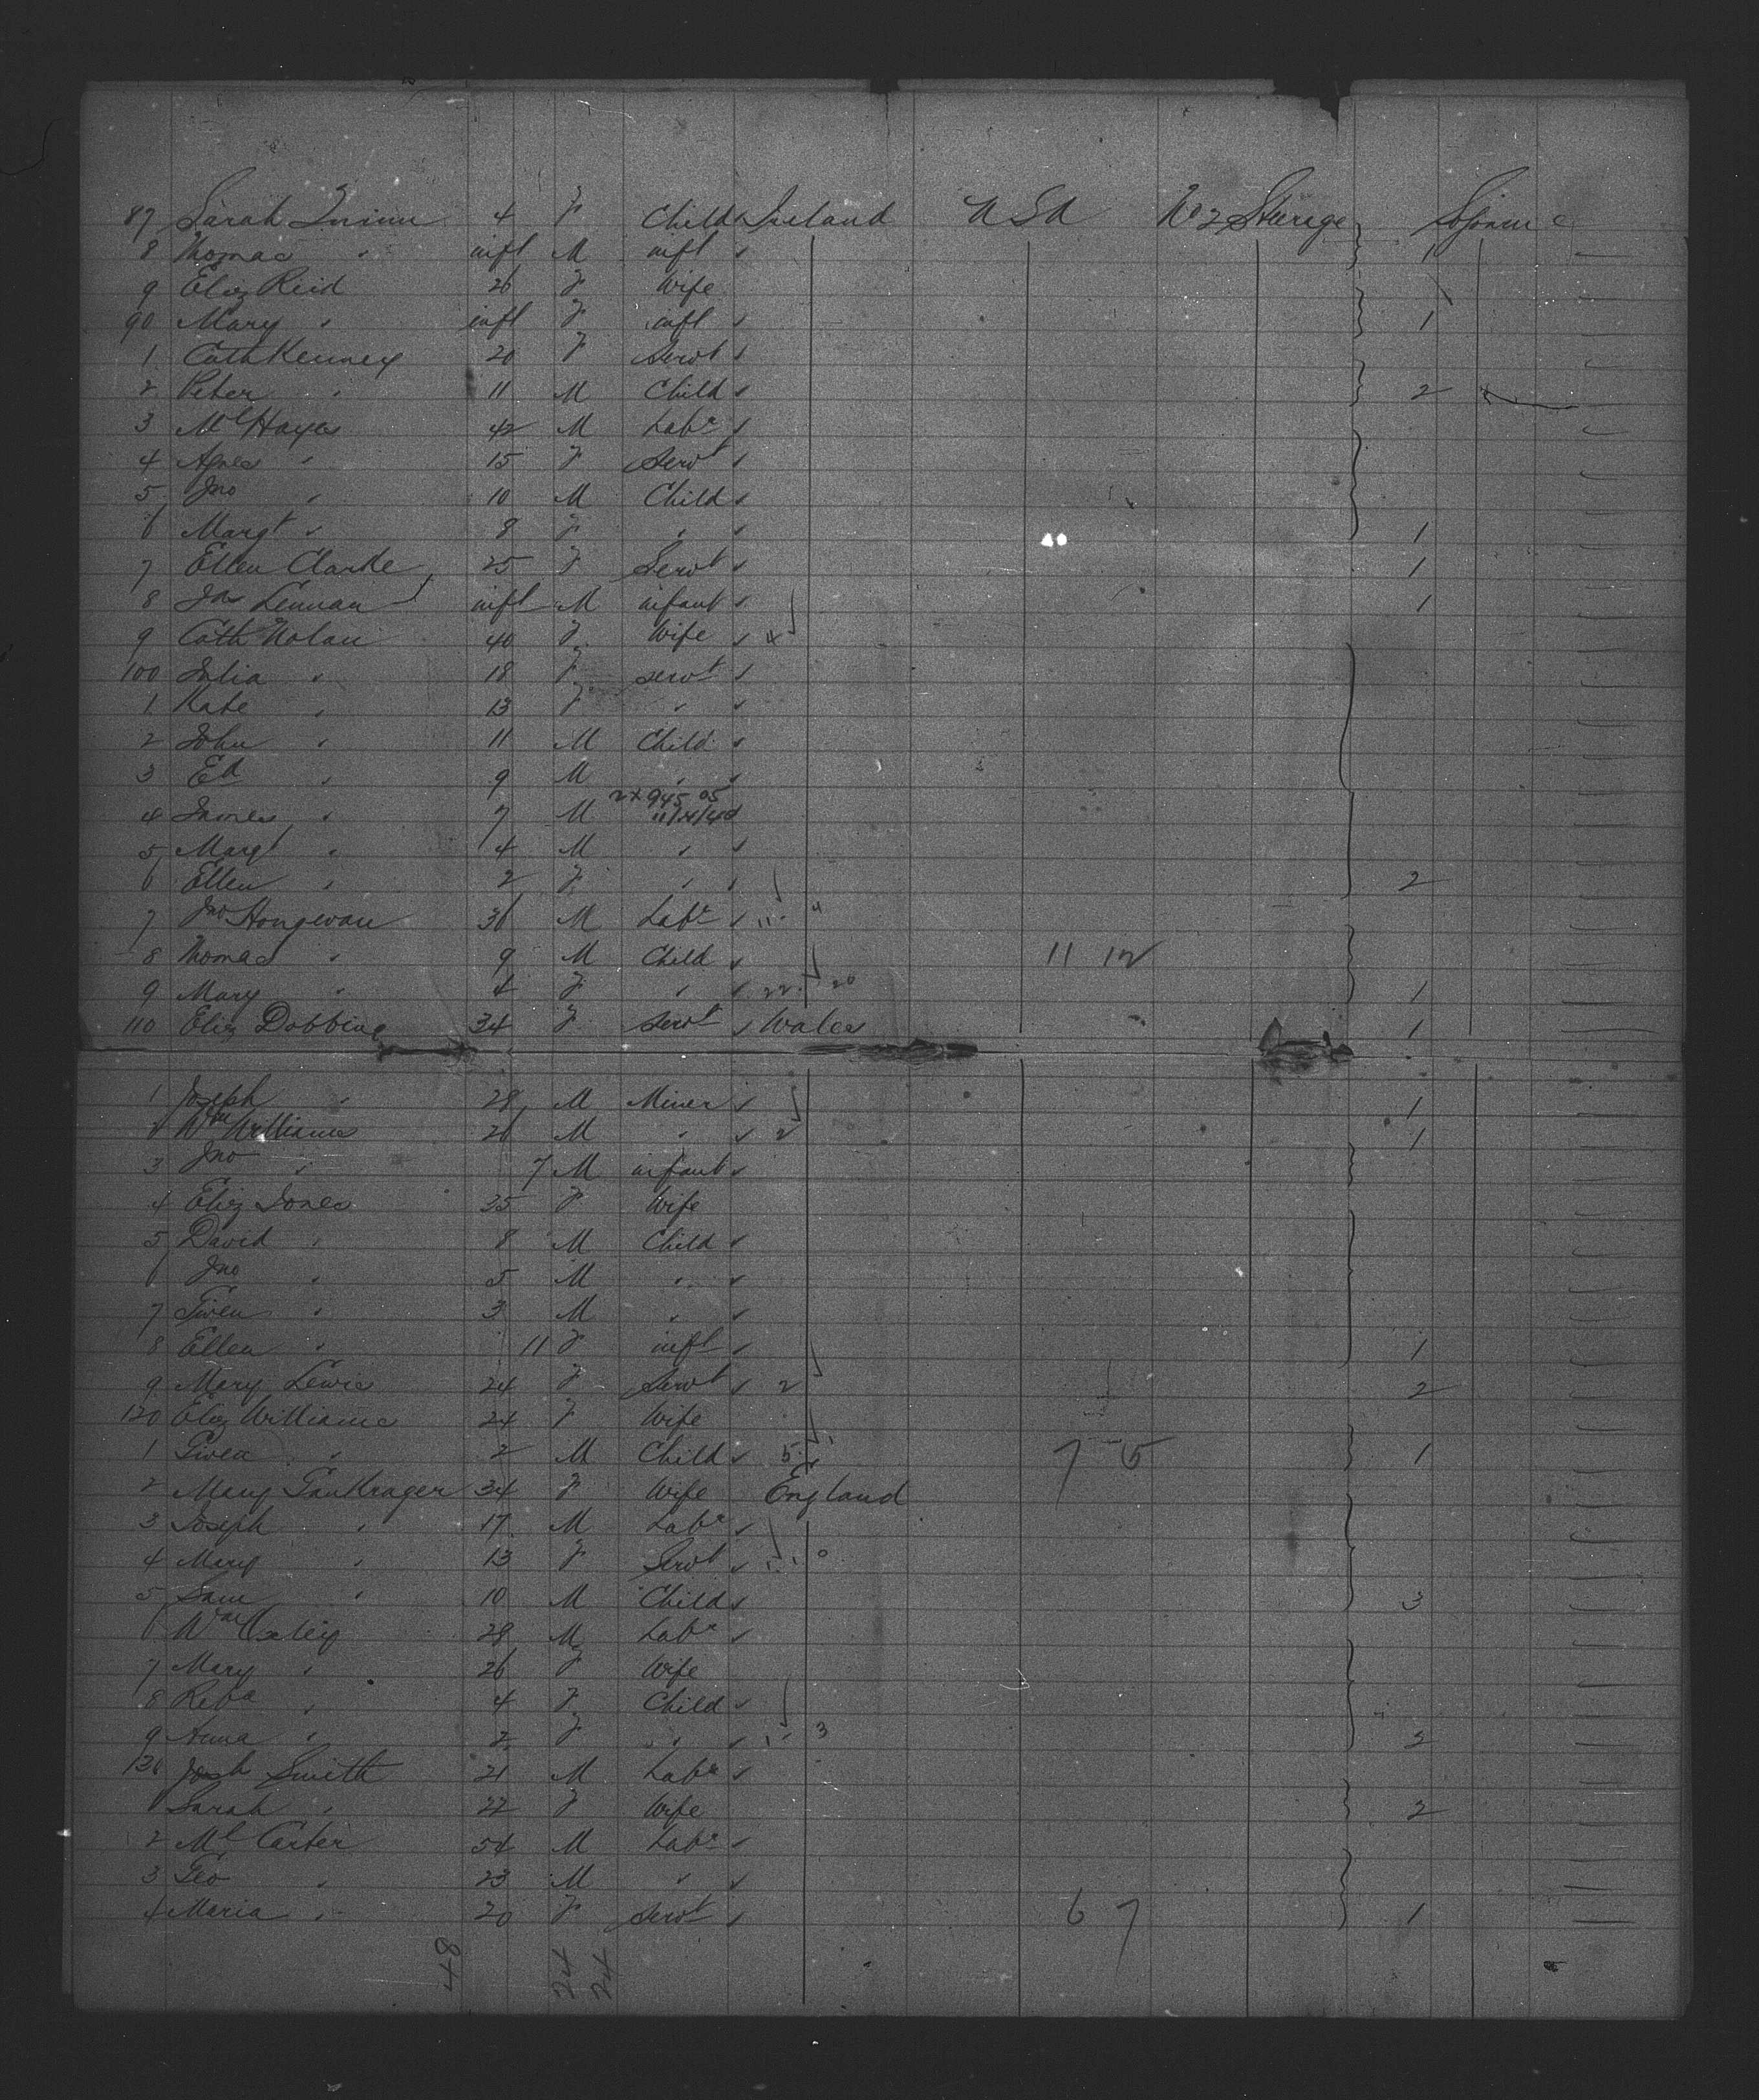 87 Sarah Quinn 4 F Child Ireland USA No 2 Steerage Sojourn
8 Thomas " inft M inft " 1
9 Eliz Reid 26 F Wife
90 Mary " inft F inft " 1
1 Cath Kenney 20 F Servt "
2 Peter " 11 M Child " 2
3 Ml Hayes 42 M Labr "
4 Agnes " 15 F Servt "
5 Jno " 10 M Child "
6 Margt " 8 F " " 1
7 Ellen Clarke 25 F Servt " 1
8 Jas Lennan inft M infant " 1
9 Cath Nolan 40 F Wife " x
100 Julia " 18 F servt "
1 Kate " 13 F " "
2 John " 11 M Child "
3 Ed " 9 M " "
2x945 05
4 James " 7 M 11/14/40
5 Margt " 4 M " "
6 Ellen " 2 F " " 2
7 Jno 36 M Labr " 11
8 Thomas " 9 M Child " 11 12
9 Mary " 4 F " " 22 20 1
110 Eliz Dobbins 34 F Servt " Wales 1
1 Joseph " 28 M Miner " 1
2 Wm Williams 26 M " " 2 1
3 Jno " 7 M infant "
4 Eliz Jones 35 F Wife
5 David " 8 M Child "
6 Jno " 5 M " "
7 Gwen " 3 M " "
8 Ellen " 11 F inft " 1
9 Mary Lewis 24 F Servt " 2 2
120 Eliz Williams 24 F Wife
1 Gwen " 2 M Child " 5 7 5 1
2 Mary 34 F Wife England
3 Joseph " 17 M Labr "
4 Mary " 13 F Servt "
5 Sam " 10 M Child " 3
6 Wm 28 M Labr "
7 Mary " 26 F Wife
8 Reba " 4 F Child "
9 Anna " 2 F " " 3 2
130 Josh Smith 21 M Labr "
1 Sarah " 22 F Wife 2
2 Ml Carter 54 M Labr "
3 Geo " 23 M " "
4 Maria " 20 F Servt " 6 7 1
48 24 24